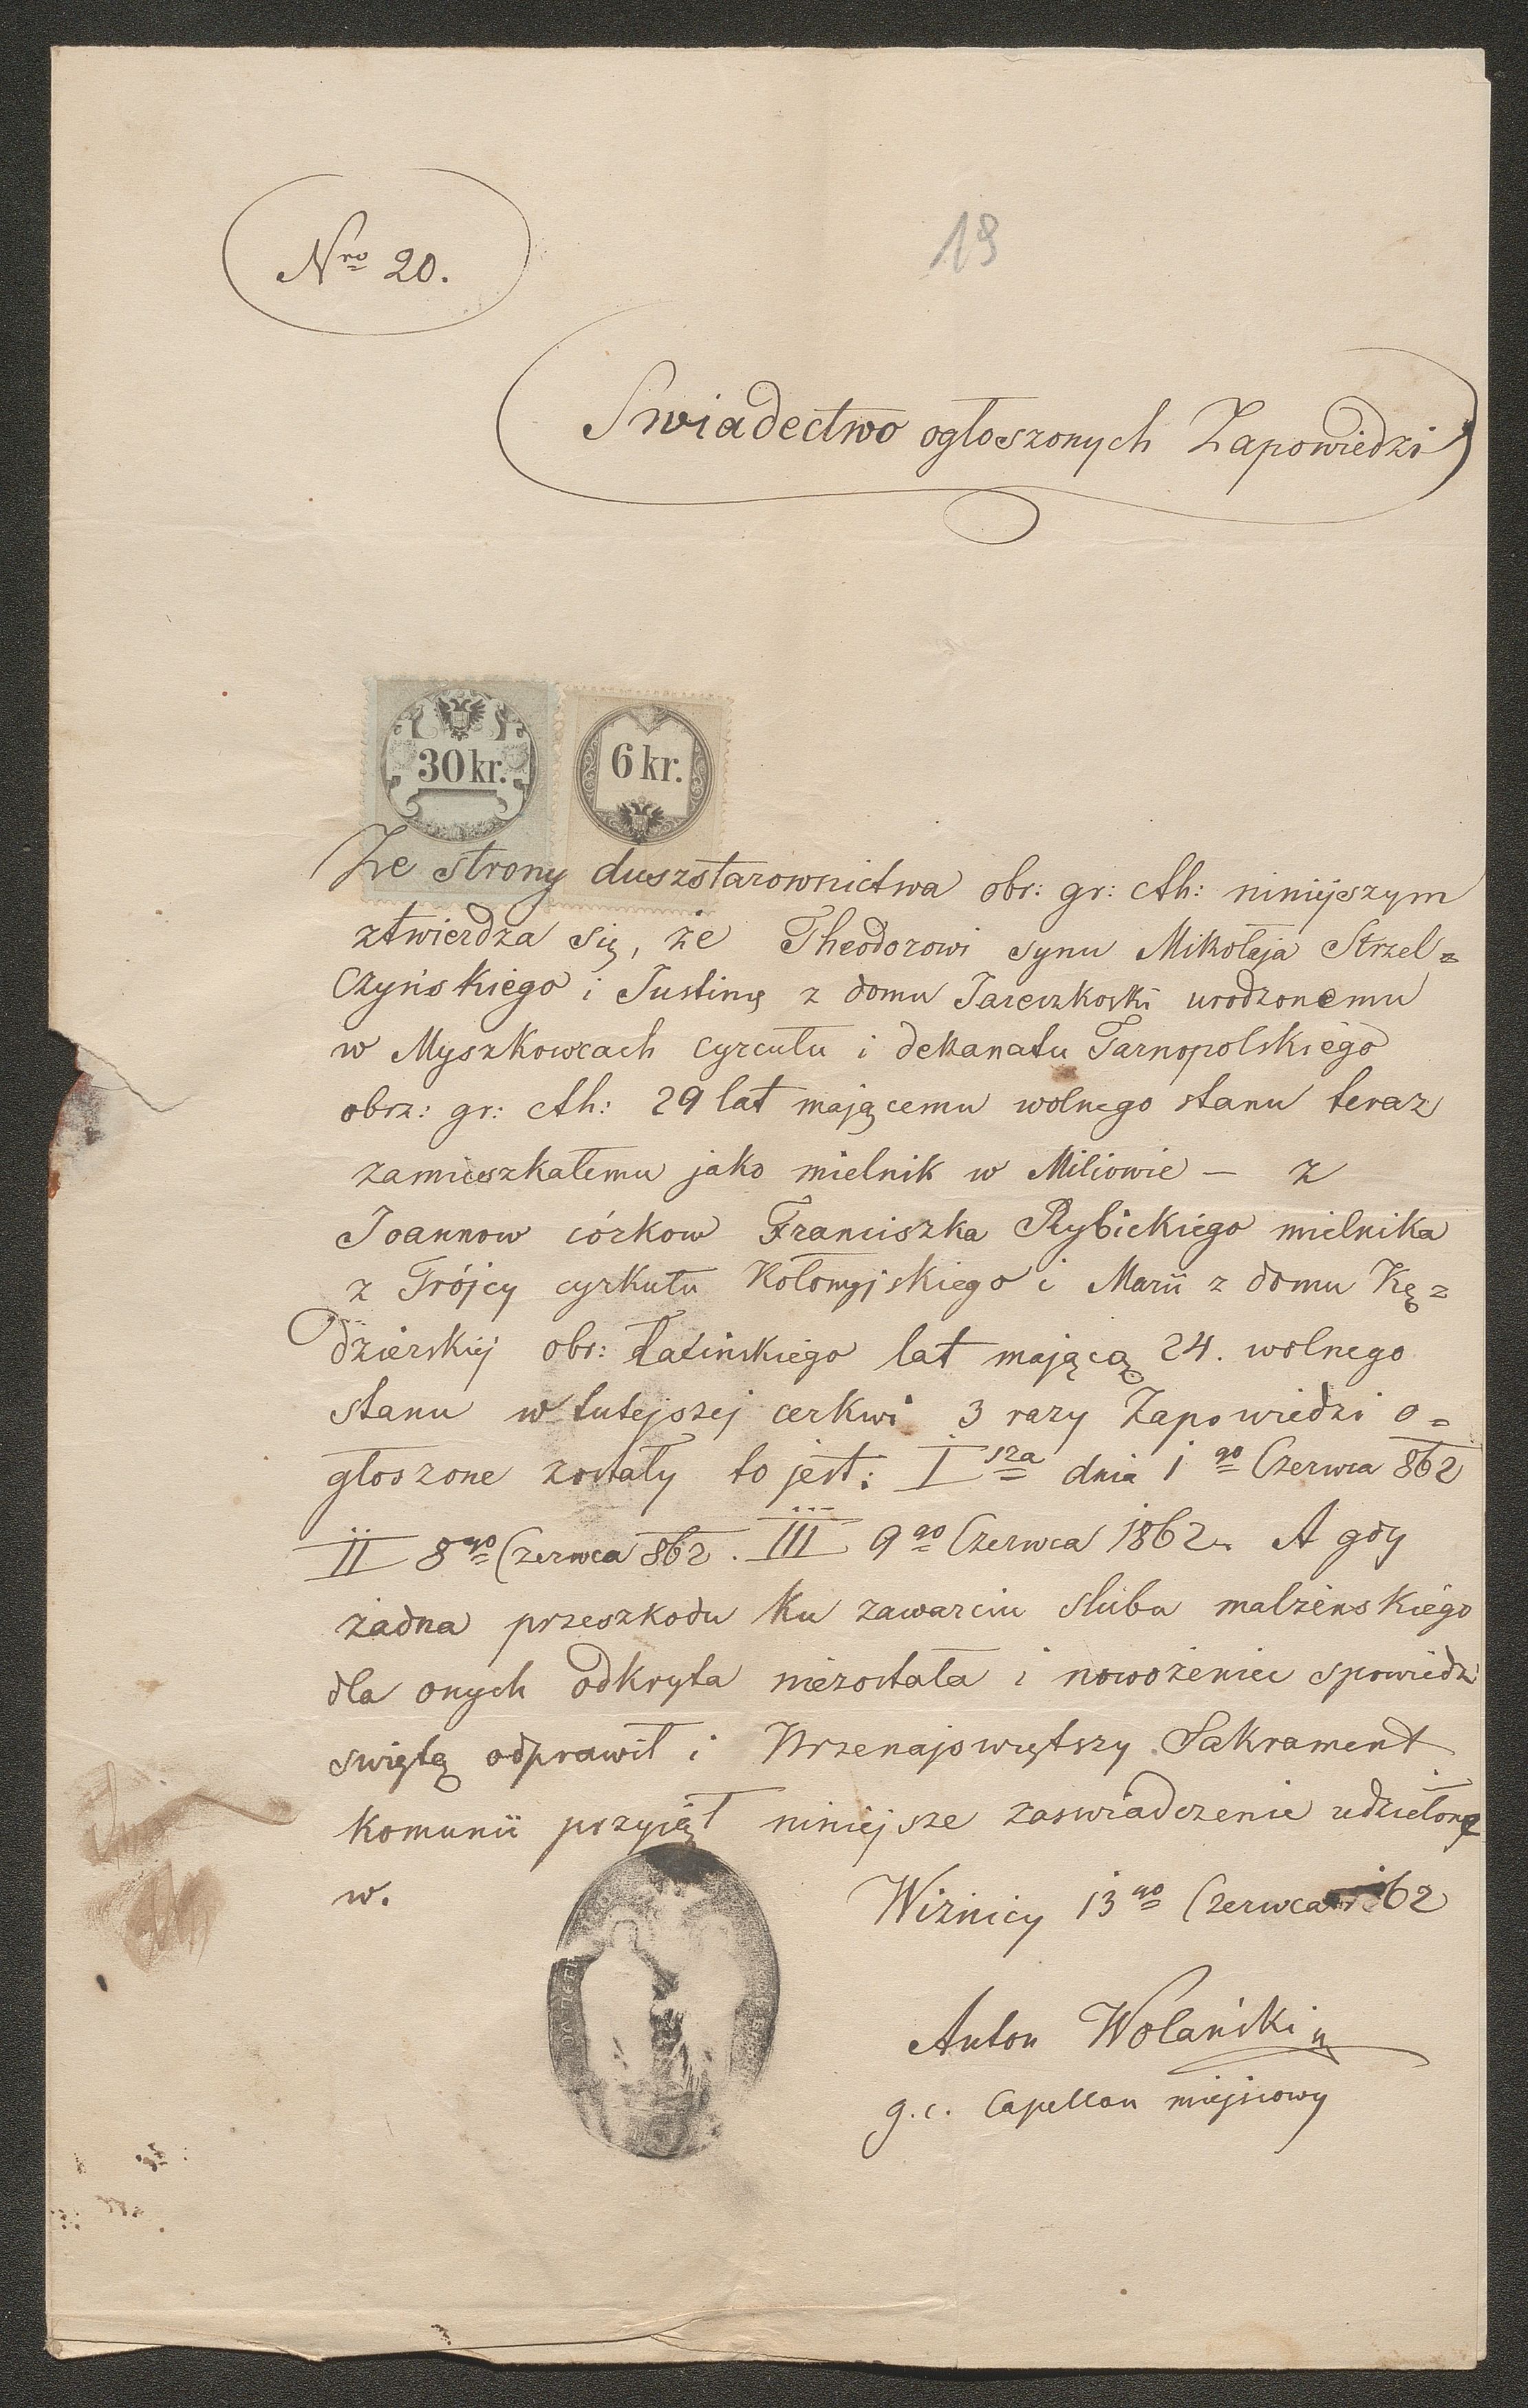 Nro 20.
19
Swiadectwo ogłoszonych Zapowiedzi
30 kr.
6 kr.
Ze strony duszstarownictwa obr: gr: cth: niniejszym
ztwierdza się, że Theodorowi synu Mikołaja Strzel=
czyńskiego i Justinę z domu Jareczkoski urodzonemu
w Myszkowcach cyrcułu i dekanatu Tarnopolskiego
obrz: gr: cth: 29 lat mającemu wolnego stanu teraz
zamieszkałemu jako mielnik w Miliowie — z
Joannow córkow Franciszka Rybickiego mielnika
z Trójcy cyrkułu Kołomyjskiego i Marii z domu Kę=
dzierskiej obr: Łatińskiego lat mającą 24. wolnego
stanu w tutejszej cerkwi 3 razy Zapowiedzi o=
głoszone zostały to jest: I sza dnia 1 go Czerwca 862
II 8 go Czerwca 862. III 9 go Czerwca 1862. A gdy
żadna przeszkodu ku zawarciu slubu malżenskiego
dla onych odkryta niezostała i nowożeniec spowiedz
swiętą odprawił i Przenajswiętszy Sakrament
Komunii przyjęł niniejsze zaswiadczenie udzielone
w. Wiżnicy 13 go Czerwca 862
Anton Wolański
g. c. Capellan miejscowy